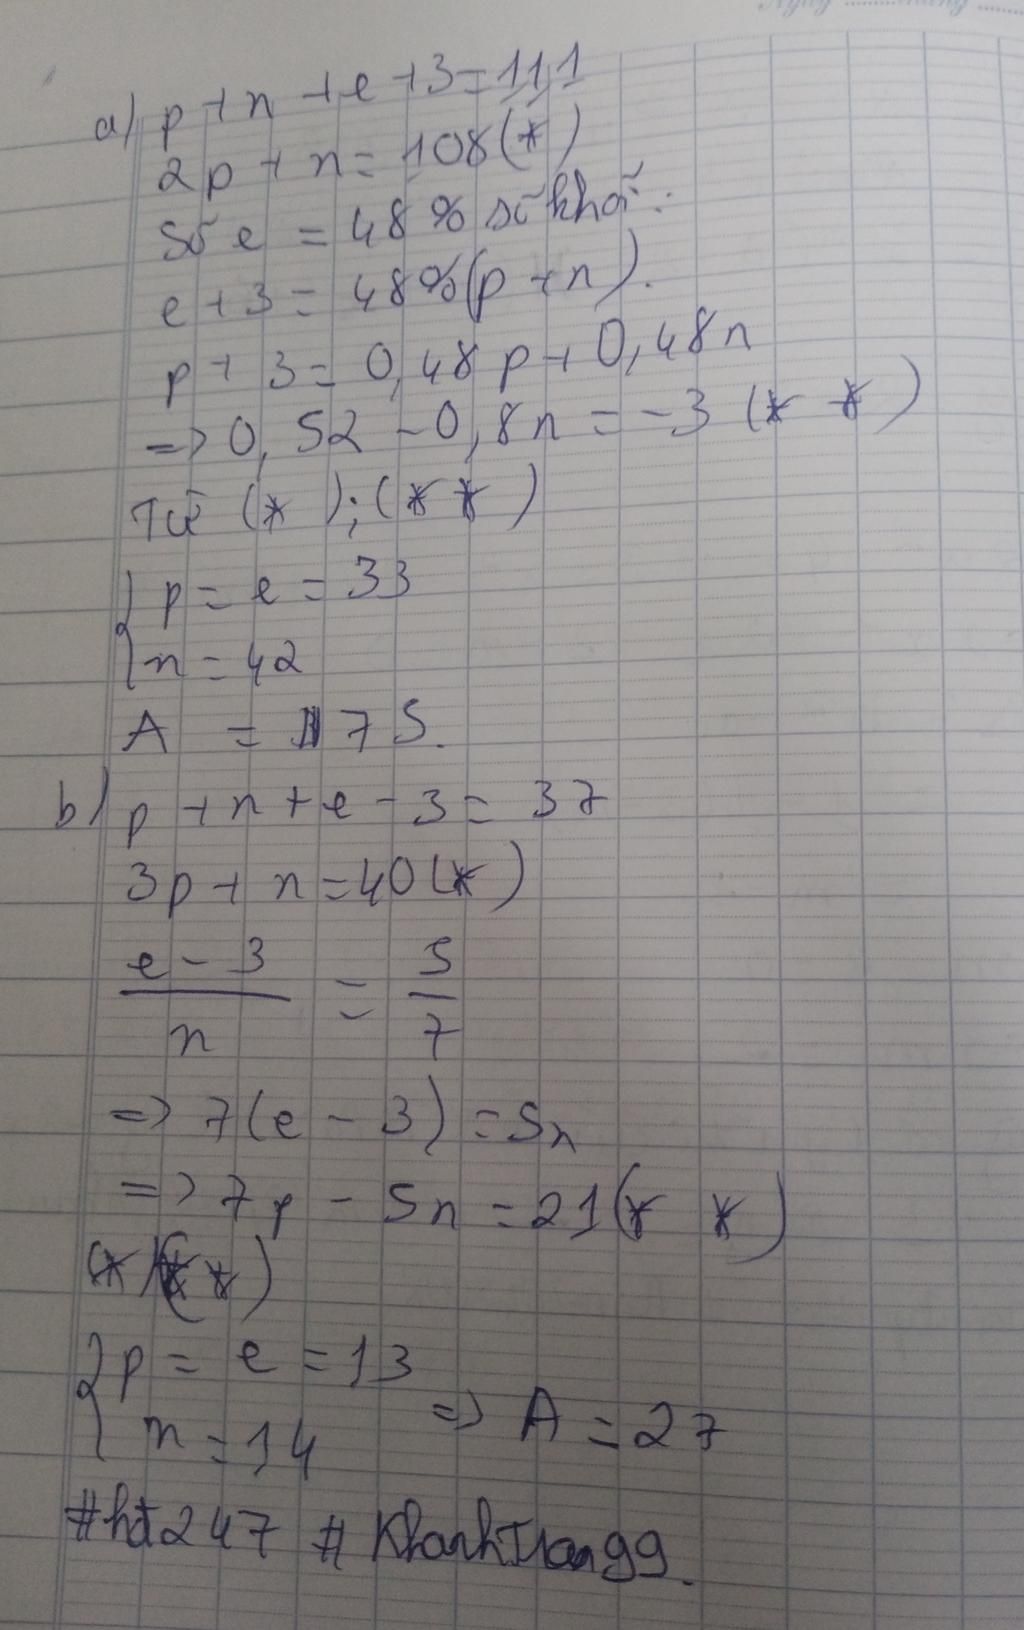 a) p + n + e + 3 = 111
2p + n = 108 (*)
Số e = 48% số khối:
e + 3 = 48% (p + n).
p + 3 = 0,48p + 0,48n
=> 0,52 - 0,8n = -3 (**)
Từ (*); (**)
{ p = e = 33
n = 42
A = 75.
b) p + n + e - 3 = 37
3p + n = 40 (*)
e - 3 / n = 5 / 7
=> 7(e - 3) = 5n
=> 7p - 5n = 21 (**)
(*) (**)
{ p = e = 13
n = 14 => A = 27
#hđ247 # KhanhTrang99.